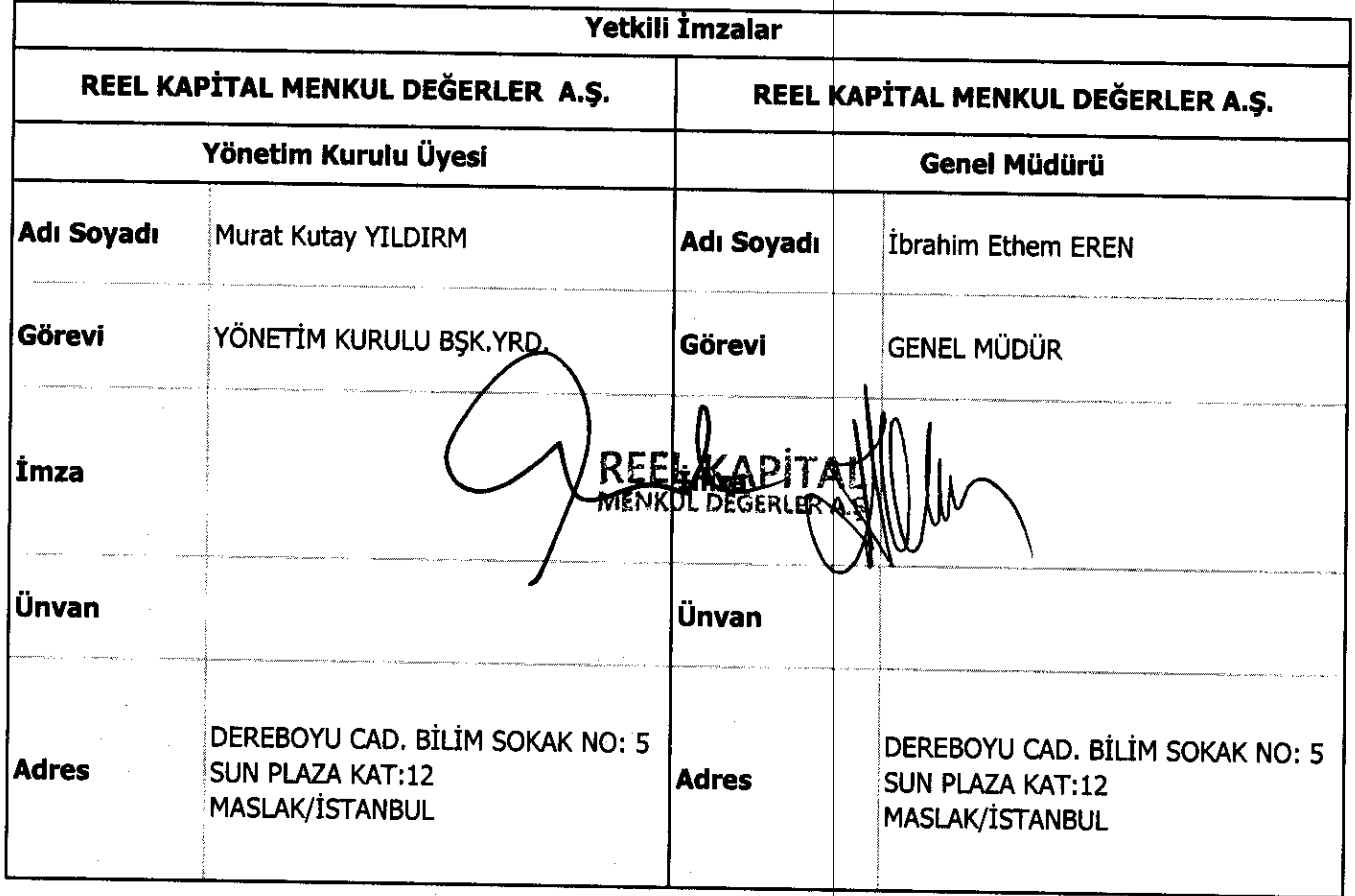 Yetkili İmzalar
REEL KAPİTAL MENKUL DEĞERLER A.Ş.
REEL KAPİTAL MENKUL DEĞERLER A.Ş.
Yönetim Kurulu Üyesi
Genel Müdürü
Adı Soyadı Murat Kutay YILDIRM
Adı Soyadı İbrahim Ethem EREN
Görevi YÖNETİM KURULU BŞK.YRD.
Görevi GENEL MÜDÜR
İmza
İmza
REEL KAPİTAL
MENKUL DEĞERLER A.Ş
Ünvan
Ünvan
Adres DEREBOYU CAD. BİLİM SOKAK NO: 5
SUN PLAZA KAT:12
MASLAK/İSTANBUL
Adres DEREBOYU CAD. BİLİM SOKAK NO: 5
SUN PLAZA KAT:12
MASLAK/İSTANBUL